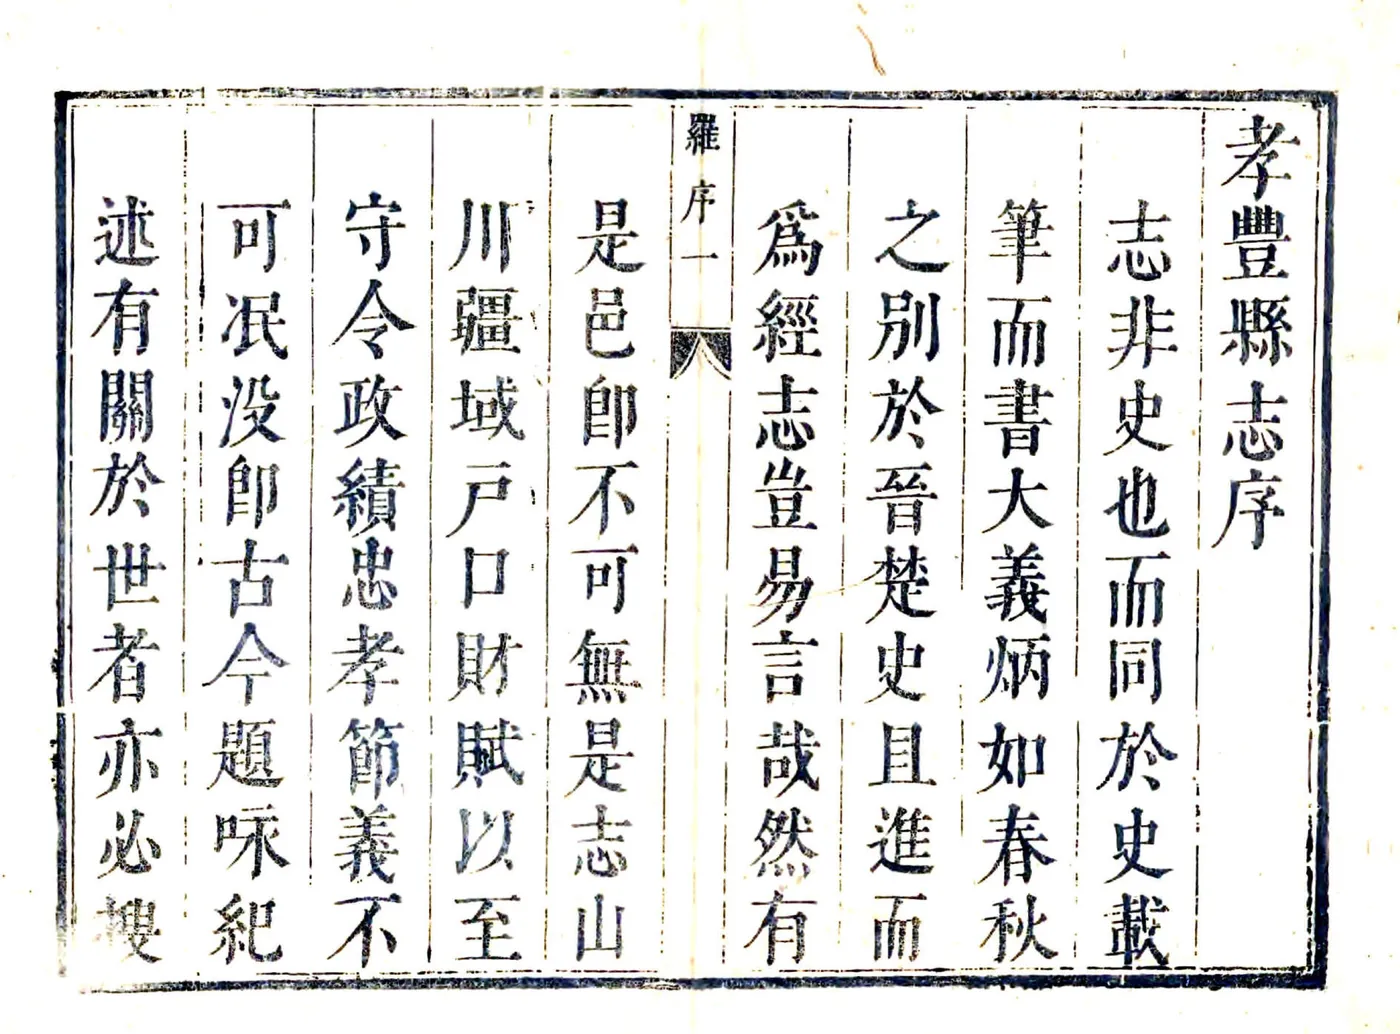 孝豐縣志序
志非史也而同於史載
筆而書大義炳如春秋
之別於晉楚史且進而
爲經志豈易言哉然有
羅序一
是邑卽不可無是志山
川疆域戸口財賦以至
守令政績忠孝節義不
可冺没卽古今題咏紀
述有關於世者亦必搜